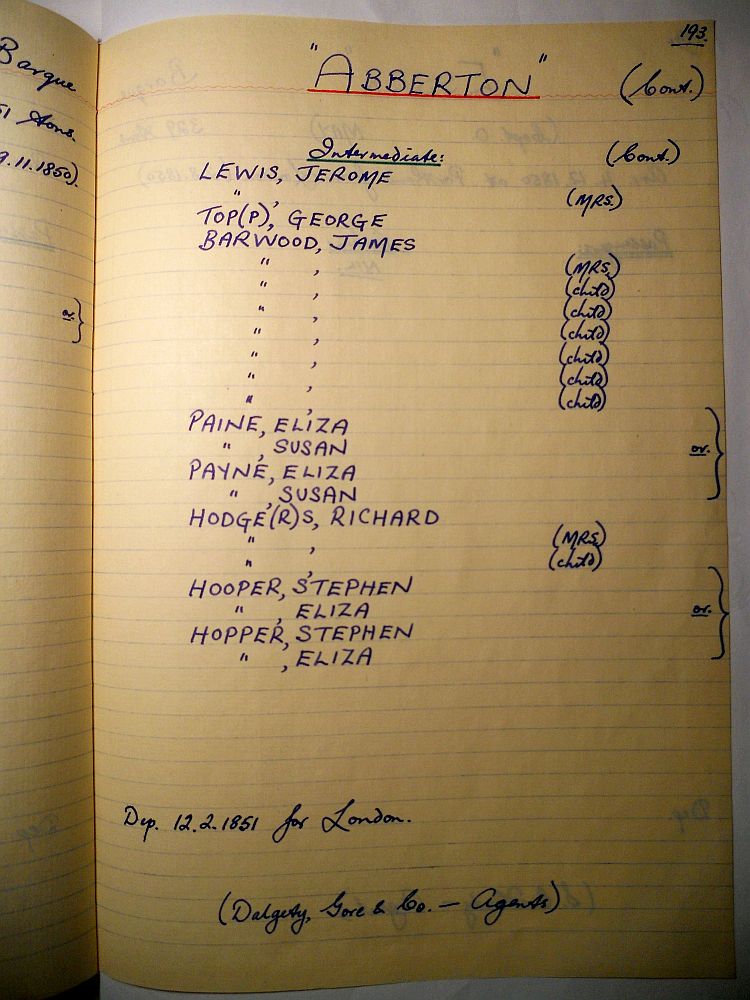 Barque
51 Tons.
9.11.1850).
or.
193.
"ABBERTON" (Cont.)
Intermediate: (Cont.)
LEWIS, JEROME
" , (MRS.)
TOP(P), GEORGE
BARWOOD, JAMES
" , (MRS.)
" , (child)
" , (child)
" , (child)
" , (child)
" , (child)
" , (child)
PAINE, ELIZA
" , SUSAN
or.
PAYNE, ELIZA
" , SUSAN
HODGE(R)S, RICHARD
" , (MRS.)
" , (child)
HOOPER, STEPHEN
" , ELIZA
or.
HOPPER, STEPHEN
" , ELIZA
Dep. 12.2.1851 for London.
(Dalgety, Gore & Co. — Agents)